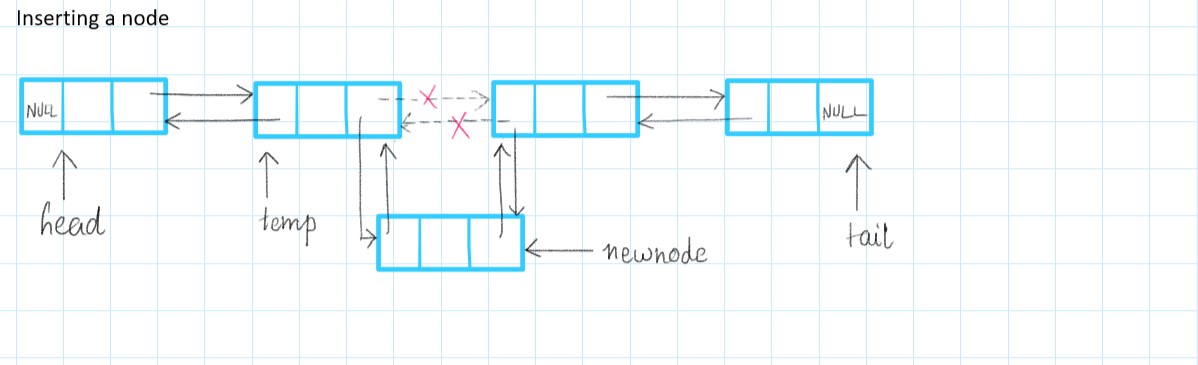 Inserting a node
NULL
NULL
head
temp
newnode
tail